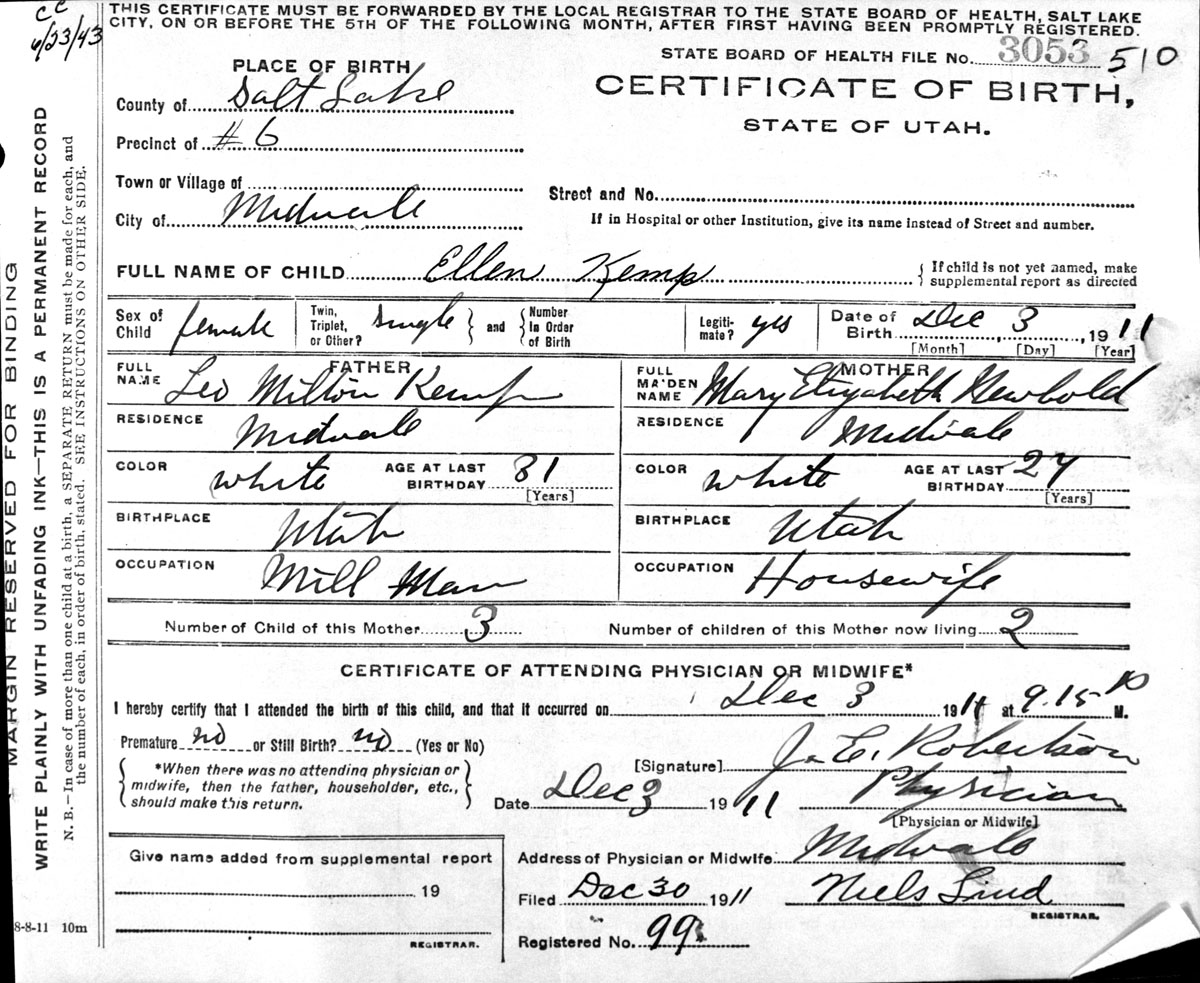 cc
6/23/43
THIS CERTIFICATE MUST BE FORWARDED BY THE LOCAL REGISTRAR TO THE STATE BOARD OF HEALTH, SALT LAKE
CITY, ON OR BEFORE THE 5TH OF THE FOLLOWING MONTH, AFTER FIRST HAVING BEEN PROMPTLY REGISTERED.
STATE BOARD OF HEALTH FILE No. 3053 510
CERTIFICATE OF BIRTH,
STATE OF UTAH.
PLACE OF BIRTH
County of Salt Lake
Precinct of #6
Town or Village of
Street and No.
City of Midvale
If in Hospital or other Institution, give its name instead of Street and number.
FULL NAME OF CHILD Ellen Kemp { If child is not yet named, make
supplemental report as directed
Sex of Child female
Twin, Triplet, or Other? single } and { Number In Order of Birth
Legiti-mate? yes
Date of Birth Dec 3, 1911
[Month] [Day] [Year]
FATHER
FULL NAME Leo Milton Kemp
RESIDENCE Midvale
COLOR white AGE AT LAST BIRTHDAY 31 [Years]
BIRTHPLACE Utah
OCCUPATION Mill Man
MOTHER
FULL MAIDEN NAME Mary Elizabeth Newbold
RESIDENCE Midvale
COLOR white AGE AT LAST BIRTHDAY 27 [Years]
BIRTHPLACE Utah
OCCUPATION Housewife
Number of Child of this Mother 3 Number of children of this Mother now living 2
CERTIFICATE OF ATTENDING PHYSICIAN OR MIDWIFE*
I hereby certify that I attended the birth of this child, and that it occurred on Dec 3 1911 at 9.15 P M.
Premature no or Still Birth? no (Yes or No)
{ *When there was no attending physician or
midwife, then the father, householder, etc.,
should make this return. }
[Signature] J. E. Robertson
Date Dec 3 1911 Physician
[Physician or Midwife]
Give name added from supplemental report
19
REGISTRAR.
Address of Physician or Midwife Midvale
Filed Dec 30 1911 Niels Lind
REGISTRAR.
Registered No. 99
MARGIN RESERVED FOR BINDING
WRITE PLAINLY WITH UNFADING INK—THIS IS A PERMANENT RECORD
N. B.—In case of more than one child at a birth, a SEPARATE RETURN must be made for each, and
the number of each, in order of birth, stated. SEE INSTRUCTIONS ON OTHER SIDE.
8-8-11 10m